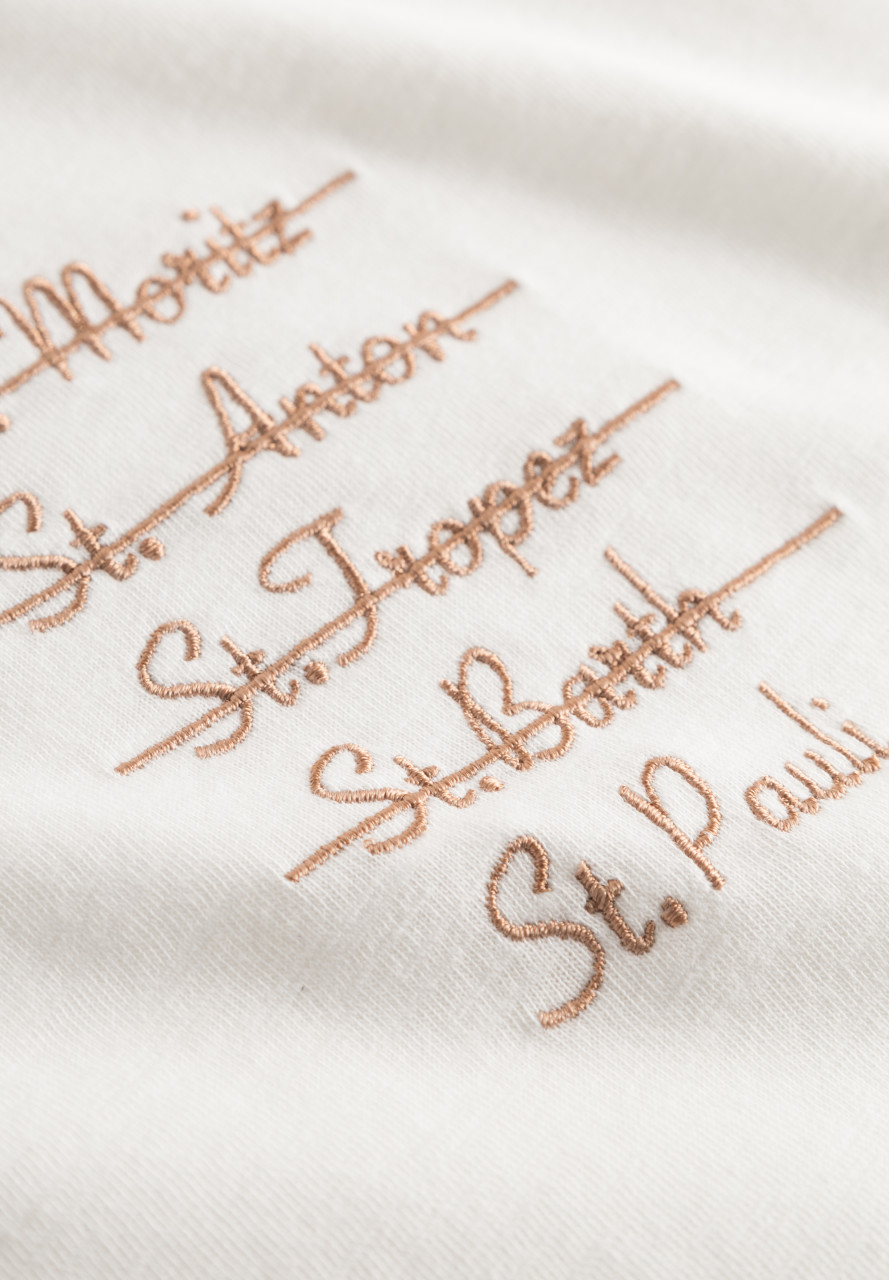 . Moritz
St. Anton
St. Tropez
St. Barth
St. Pauli